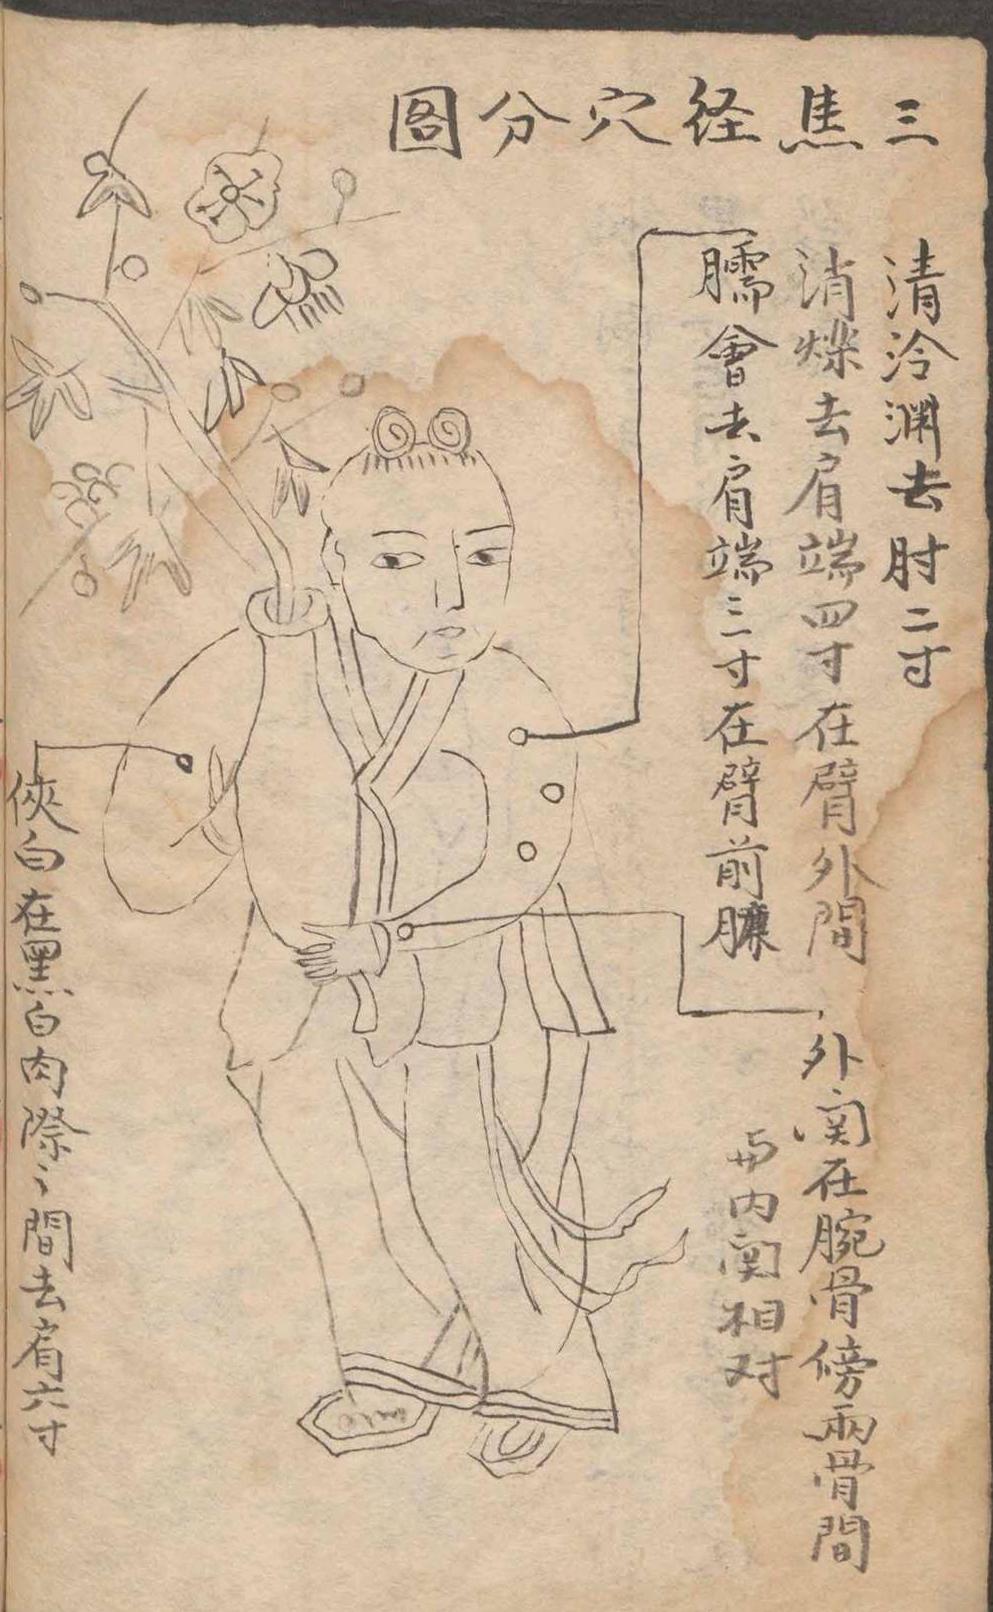 三焦経穴分圖
清泠渊去肘二寸
消爍去肩端四寸在臂外間
臑會去肩端三寸在臂前臁
外関在腕骨傍両骨間
与内関相对
俠白在黑白肉際〻間去肩六寸